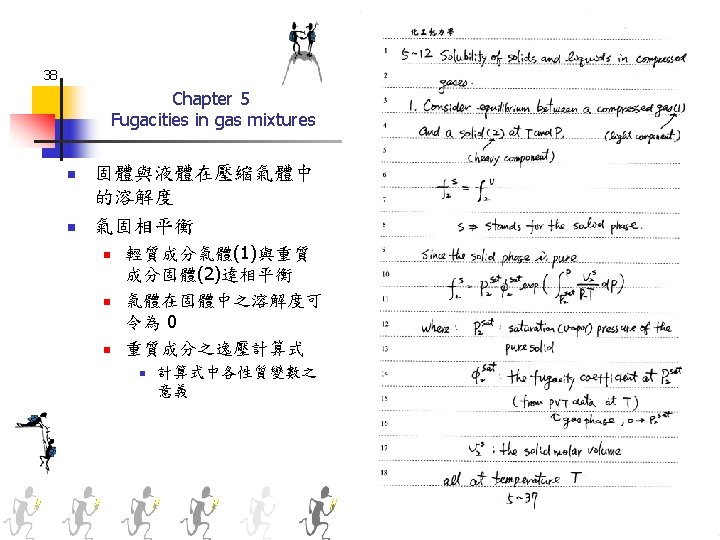 38
Chapter 5
Fugacities in gas mixtures
固體與液體在壓縮氣體中
的溶解度
氣固相平衡
輕質成分氣體(1)與重質
成分固體(2)達相平衡
氣體在固體中之溶解度可
令為 0
重質成分之逸壓計算式
計算式中各性質變數之
意義
化工熱力學
1 5-12 Solubility of solids and liquids in compressed
2 gases.
3 1. Consider equilibrium between a compressed gas(1)
4 and a solid(2) at T and P. (light component)
5 (heavy component)
6 f₂ˢ = f₂ⱽ
7
8 s ⇒ stands for the solid phase.
9 Since the solid phase is pure
10
11 f₂ˢ = P₂ˢᵃᵗ ϕ₂ˢᵃᵗ exp( ∫_{P₂ˢᵃᵗ}^{P} v₂ˢ/RT dP )
12 where: P₂ˢᵃᵗ : saturation (vapor) pressure of the
13 pure solid
14 ϕ₂ˢᵃᵗ : the fugacity coefficient at P₂ˢᵃᵗ
15 (from PVT data at T)
16 gas phase, 0→P₂ˢᵃᵗ
17 v₂ˢ : the solid molar volume
18 all at temperature T
5-37